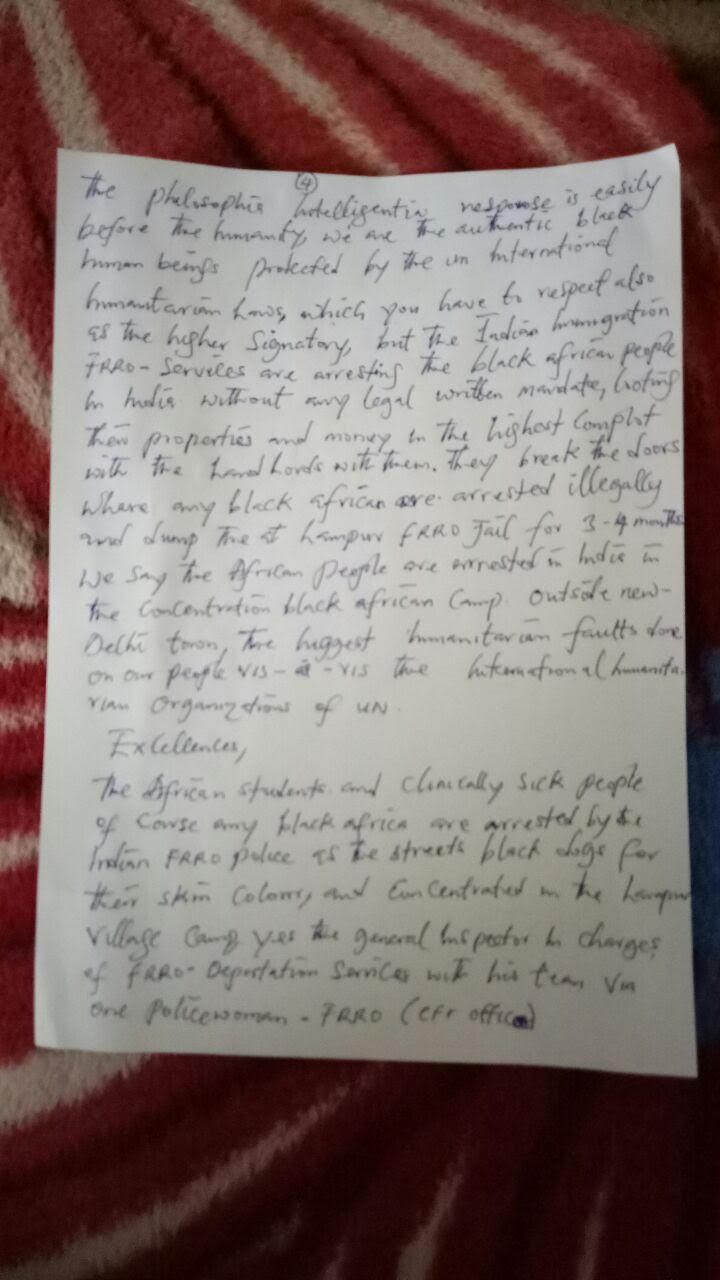 ④
the philosophia Intelligentia response is easily
before the humanity, we are the authentic black
human beings protected by the un International
humanitarian Laws, which you have to respect also
as the higher Signatory, but the Indian Immigration
FRRO-Services are arresting the black african people
In India without any legal written mandate, looting
their properties and money in the highest Complot
with the Landlords with them. They break the doors
where any black african are arrested illegally
and dump the at Lampur FRRO Jail for 3-4 months
We say the African people are arrested in India in
the Concentration black african Camp outside new-
Delhi town, the biggest humanitarian faults done
on our people vis-à-vis the International humanita-
rian Organizations of UN.
Excellences,
The African students and clinically sick people
of Course any black africa are arrested by the
Indian FRRO police as the streets black dogs for
their skin Colour, and Concentrated in the Lampur
Village Camp yes the general Inspector In charges
of FRRO-Deportation Services with his team via
one Policewoman-FRRO (cfr office)